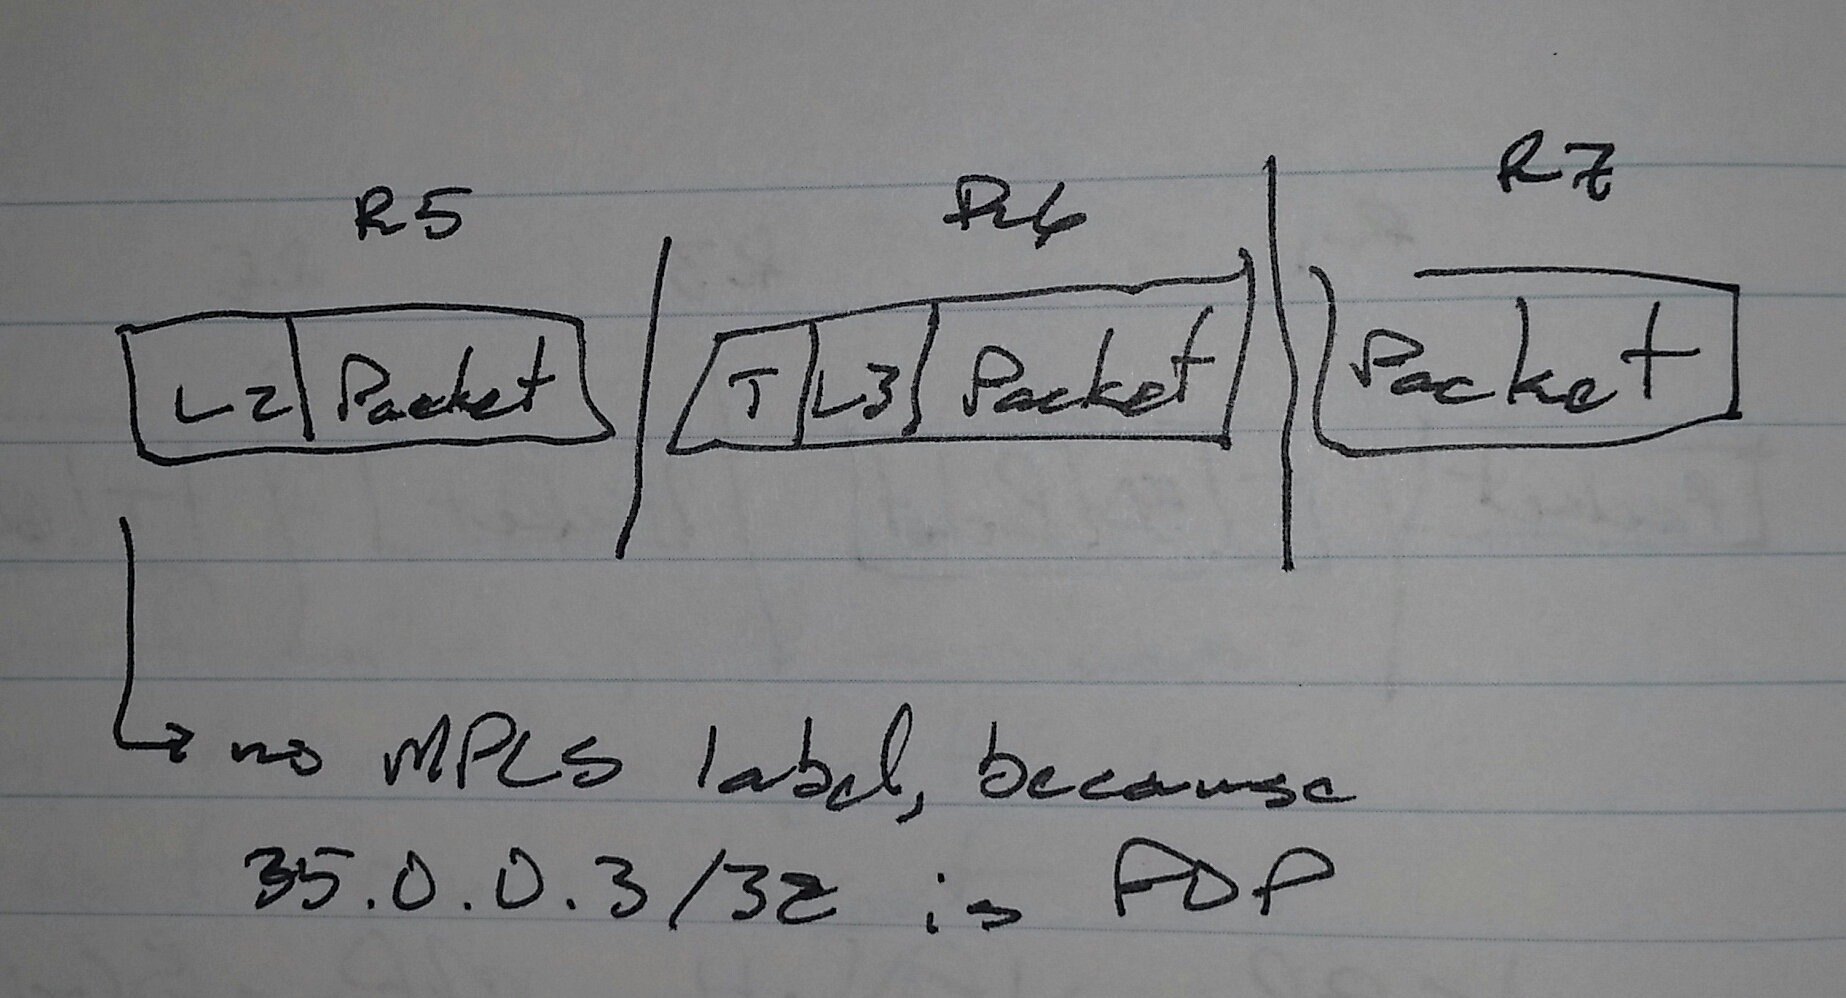 R5 R6 R7
L2 Packet T L3 Packet Packet
no MPLS label, because
35.0.0.3/32 is POP